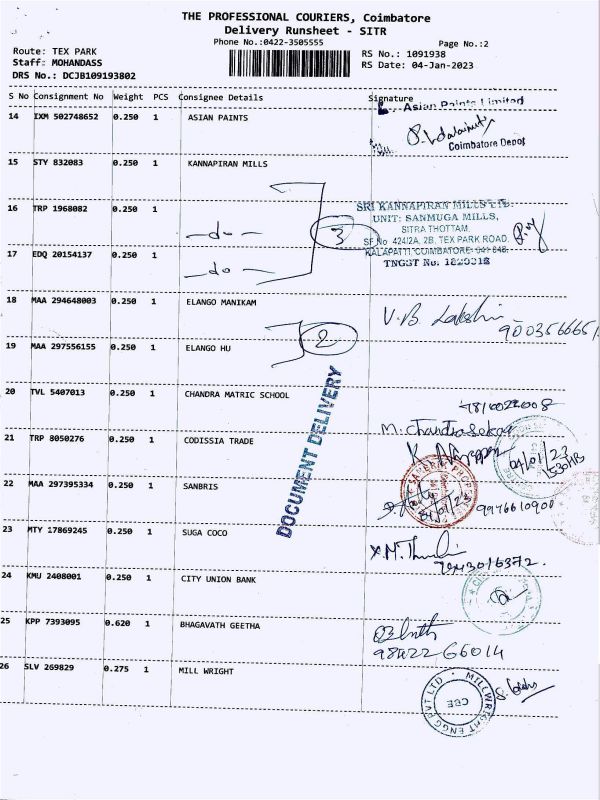 THE PROFESSIONAL COURIERS, Coimbatore
Delivery Runsheet - SITR
Phone No.:0422-3505555
Page No.:2
Route: TEX PARK
Staff: MOHANDASS
DRS No.: DCJB109193802
RS No.: 1091938
RS Date: 04-Jan-2023
S No Consignment No Weight PCS Consignee Details Signature
14 IXM 502748652 0.250 1 ASIAN PAINTS
Asian Paints Limited
Coimbatore Depot
15 STY 832083 0.250 1 KANNAPIRAN MILLS
16 TRP 1968082 0.250 1 -do- 3
SRI KANNAPIRAN MILLS LTD.
UNIT: SANMUGA MILLS,
SITRA THOTTAM,
SF.No 424/2A, 2B, TEX PARK ROAD,
KALAPATTI, COIMBATORE-641 048.
TNGST No.
17 EDQ 20154137 0.250 1 -do-
18 MAA 294648003 0.250 1 ELANGO MANIKAM
V.B. Lakshmi
19 MAA 297556155 0.250 1 ELANGO HU 2
20 TVL 5407013 0.250 1 CHANDRA MATRIC SCHOOL
M. Chandrasekar
21 TRP 8050276 0.250 1 CODISSIA TRADE
04/01/23
DOCUMENT DELIVERY
22 MAA 297395334 0.250 1 SANBRIS
9976610900
23 MTY 17869245 0.250 1 SUGA COCO
24 KMU 2408001 0.250 1 CITY UNION BANK
25 KPP 7393095 0.620 1 BHAGAVATH GEETHA
9842266014
26 SLV 269829 0.275 1 MILL WRIGHT
MILLWRIGHT ENGG PVT LTD
CBE